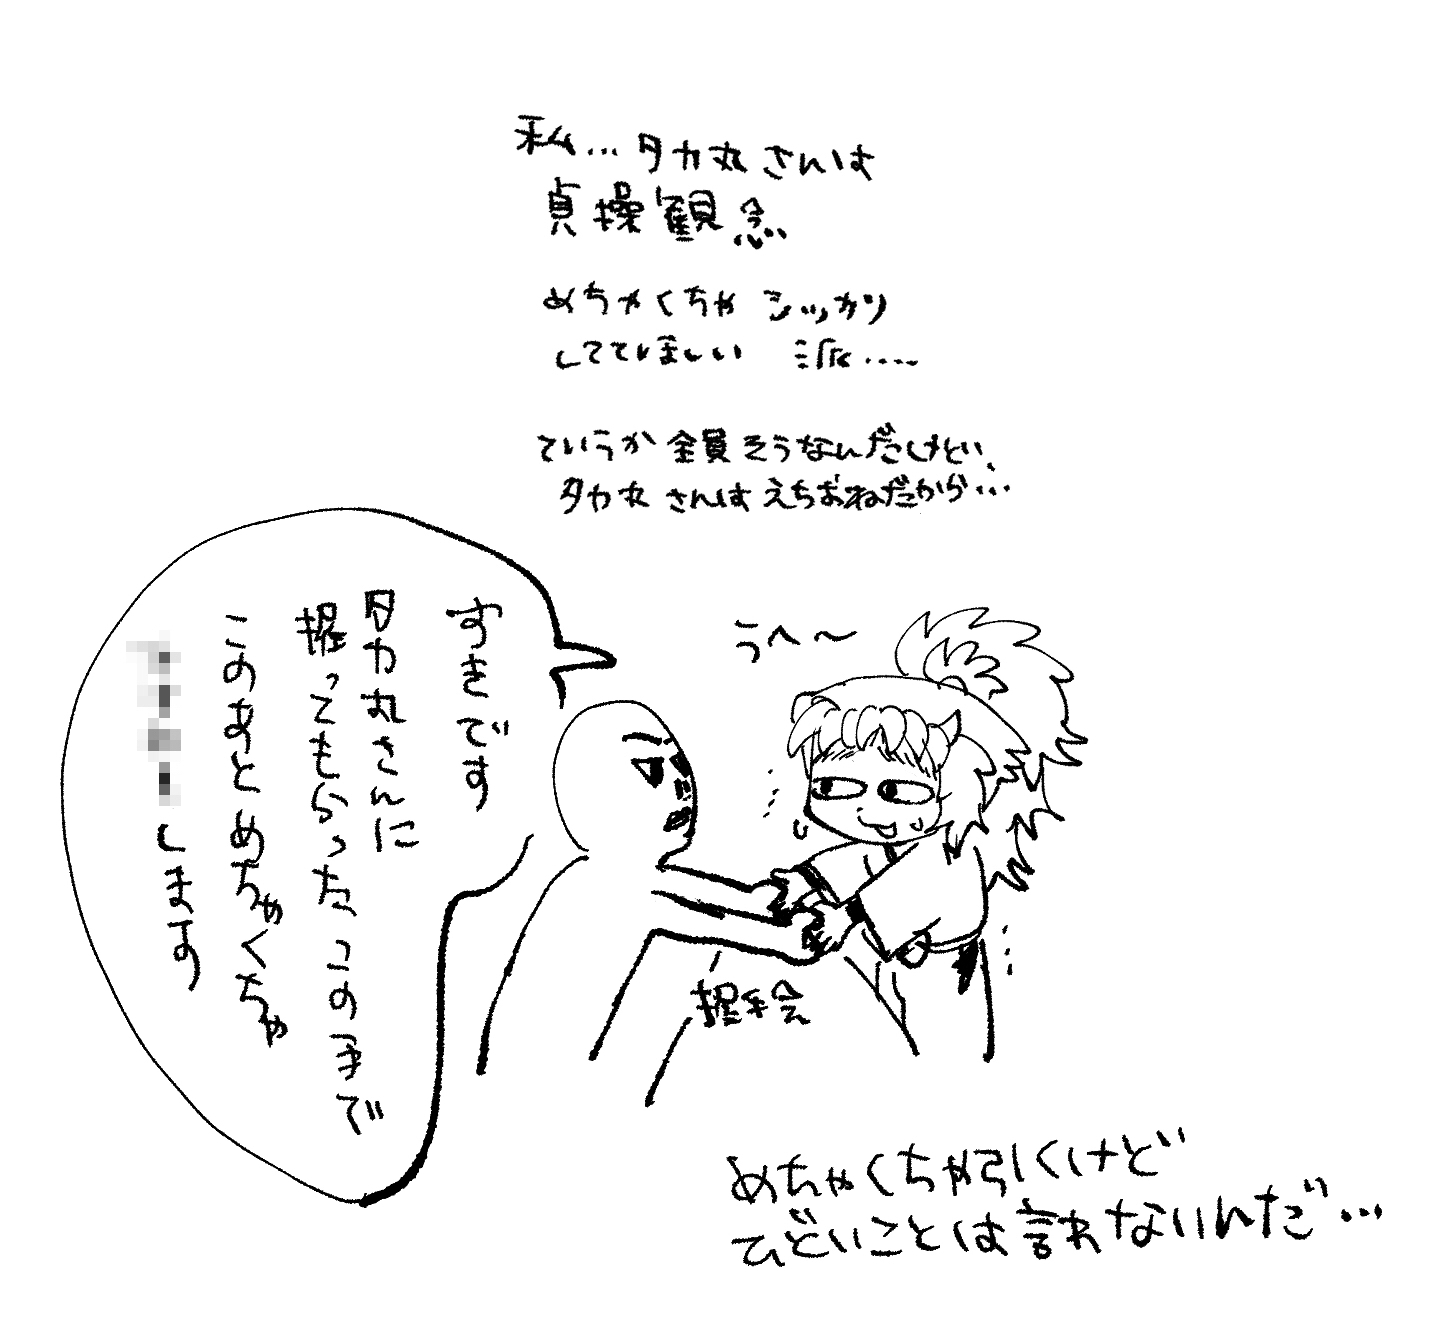 私…タカ丸さんは
貞操観念
めちゃくちゃシッカリ
しててほしい 派……
ていうか全員そうなんだけど、
タカ丸さんはえちおねだから…
すきです
タカ丸さんに
握ってもらった、この手で
このあとめちゃくちゃ
します
うへ～
握手会
めちゃくちゃ引くけど
ひどいことは言えないんだ…